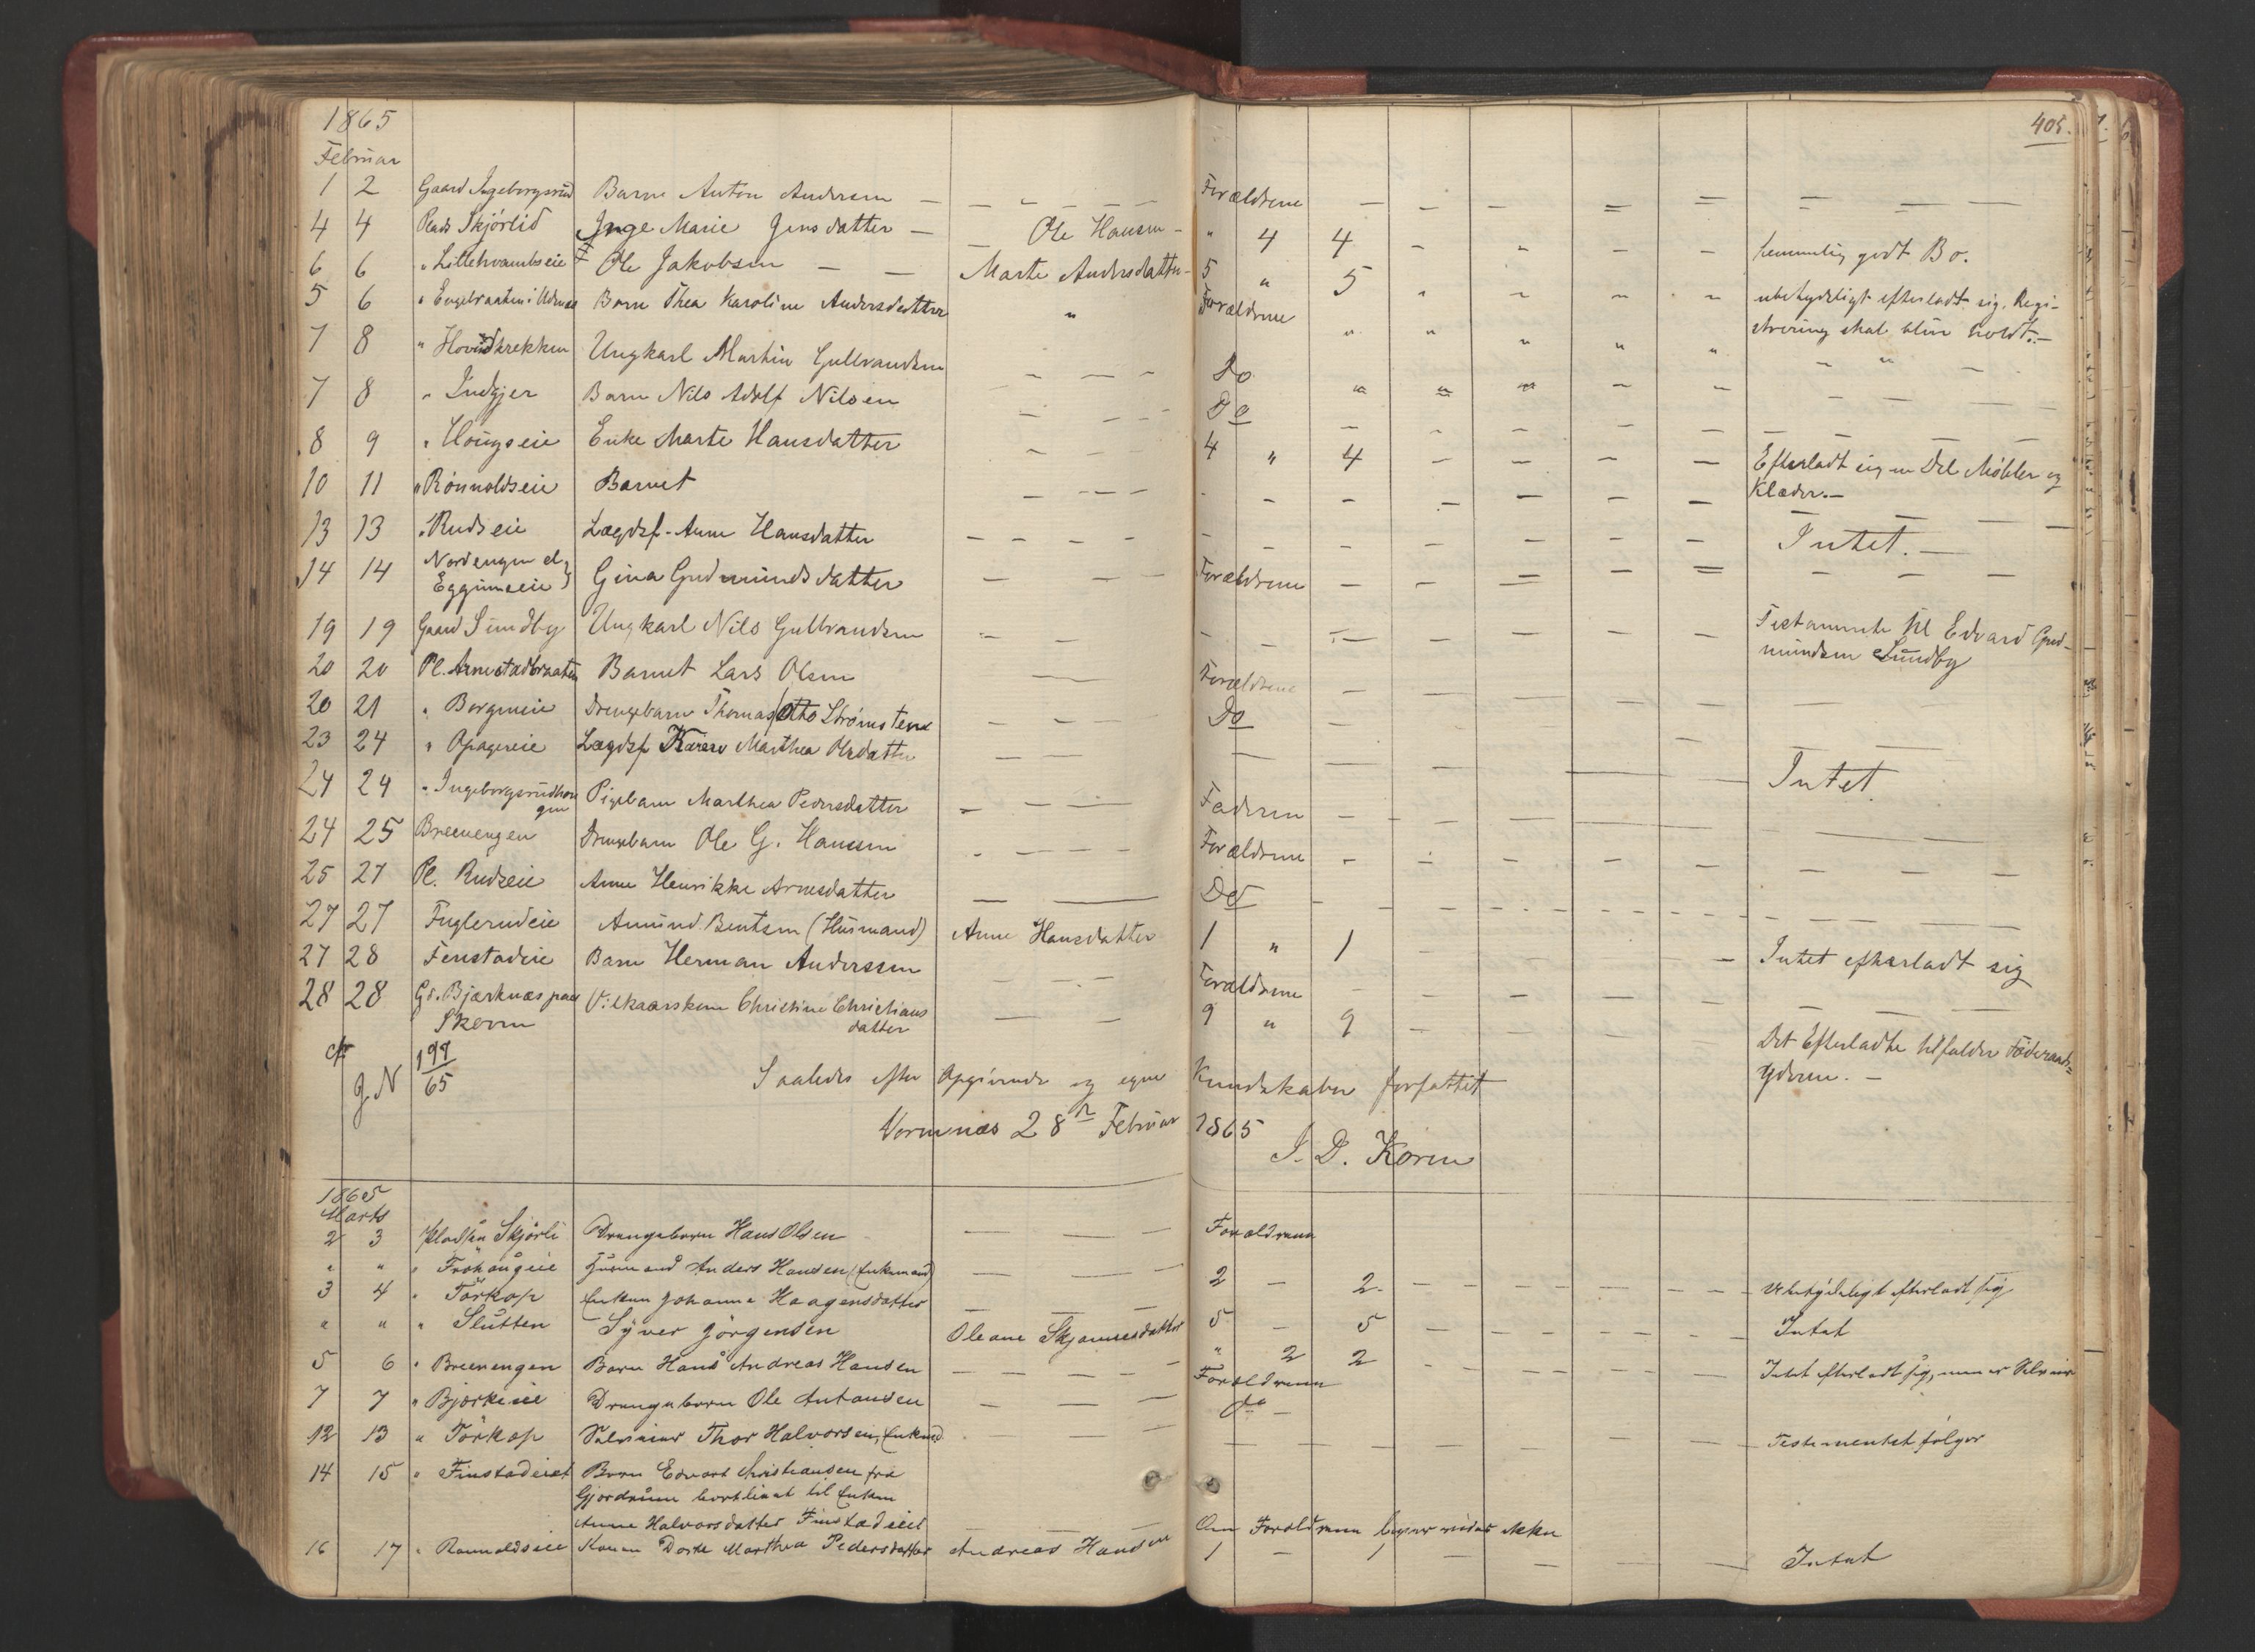 405.
1865
Februar
1 2 Gaard Ingeborgsrud Barn Anton Andersen — — — — — Forældrene — — — — — — — —
4 4 Plads Skjørlid Inge Marie Jensdatter — — Ole Hansen - " 4 4 - " - - temmelig godt Bo.
6 6 " Lillehvambseie Ole Jakobsen — — Marte Andersdatter - 5 " 5 " - - - ubetydeligt efterladt sig, Regi-
strering skal blive holdt. —
5 6 " Engebraaten i Udenæs Barn Thea Karoline Andersdatter " Forældrene " " " " " - " -
7 8 " Ungkarl Martin Gulbrandsen - — - Do " " " - - — — —
7 8 " Indgjer Barn Nils Adolf Nilsen — - - - Do — - - — — — — —
8 9 " Hougseie Enke Marte Hansdatter - — — 4 " 4 — — — — Efterladt sig en Del Møbler og
Klæder. —
10 11 " Rönnoldseie Barnet — - — - - - - — — — — — —
13 13 " Rudseie Lægdsf. Anne Hansdatter — — — — - - — — — — — Intet. —
14 14 Nordengen el.
Eggumseie Gina Gudmundsdatter — — — Forældrene — - — — — — — —
19 19 Gaard Sundby Ungkarl Nils Gulbrandsen — — — - — — — — — — Testamente til Edvard Gud-
mundsen Sundby
20 20 Pl. Arnestadbraaten Barnet Lars Olsen — — Forældrene — — — — — —
20 21 " Borgeneie Drengebarn Thomas Otto Strømsteen — — — Do — — — —
23 24 " Opagereie Lægdsf Karen Marthea Olsdatter — — — — — — — Intet.
24 24 " Ingeborgsrudhou
gen Pigebarn Marthea Pedersdatter — — — Faderen — - — — — — —
24 25 Breenengen Drengebarn Ole G. Hansen - — — — Forældrene - - — — — — — —
25 27 Pl. Rudseie Anne Henrikke Arnesdatter — — Do - - - - - - - — —
27 27 Fuglerudeie Amund Bentsen (Husmand) Anne Hansdatter 1 " 1 - - - — Intet efterladt sig
27 28 Fenstadeie Barn Herman Anderssen — — — Forældrene - - — — — —
28 28 Gd. Bjærknæs paa
Skoven Vilkaarskone Christine Christians
datter — — 9 " 9 — — — — Det Efterladte tilfalder Föderaads=
yderen. —
cfr
J. N 197
65
Saaledes efter Opgivende og egne Kundskaber forfattet
Vormnæs 28de Februar 1865
J. D. Koren
1865
Marts
2 3 Pladsen Skjørli Drengebarn Hans Olsen — — — Forældrene
" " " Frohaugeie Husmand Anders Hansen (Enkemand) — — — 2 — 2 - — — — — — — Ubetydeligt efterladt sig
3 4 " Törkop Enken Johanne Haagensdatter — — — 5 — 5 — — — — — — Intet
" " " Slutten Syver Jörgensen Oleane " 2 2 - - - — — — Intet efterladt sig, men er
5 6 " Breenengen Barn Hans Andreas Hansen — — — — — Forældrene
7 7 " Bjørkeeie Drengebarn Ole Antonsen — — — do —
12 13 " Törkop Selveier Thor Halvorsen, Enkemd — — — — — — — — — — Testamentet følger
14 15 " Finstadeiet Barn Edvart Christiansen fra
Gjerdrum bortlient til Enken
Anne Halvorsdatter Finstadeiet — — — Om Forældrene lever vides ikke
16 17 " Rønnoldseie Konen Dorte Marthea Pedersdatter Andreas Hansen 1 — 1 — — — — Intet